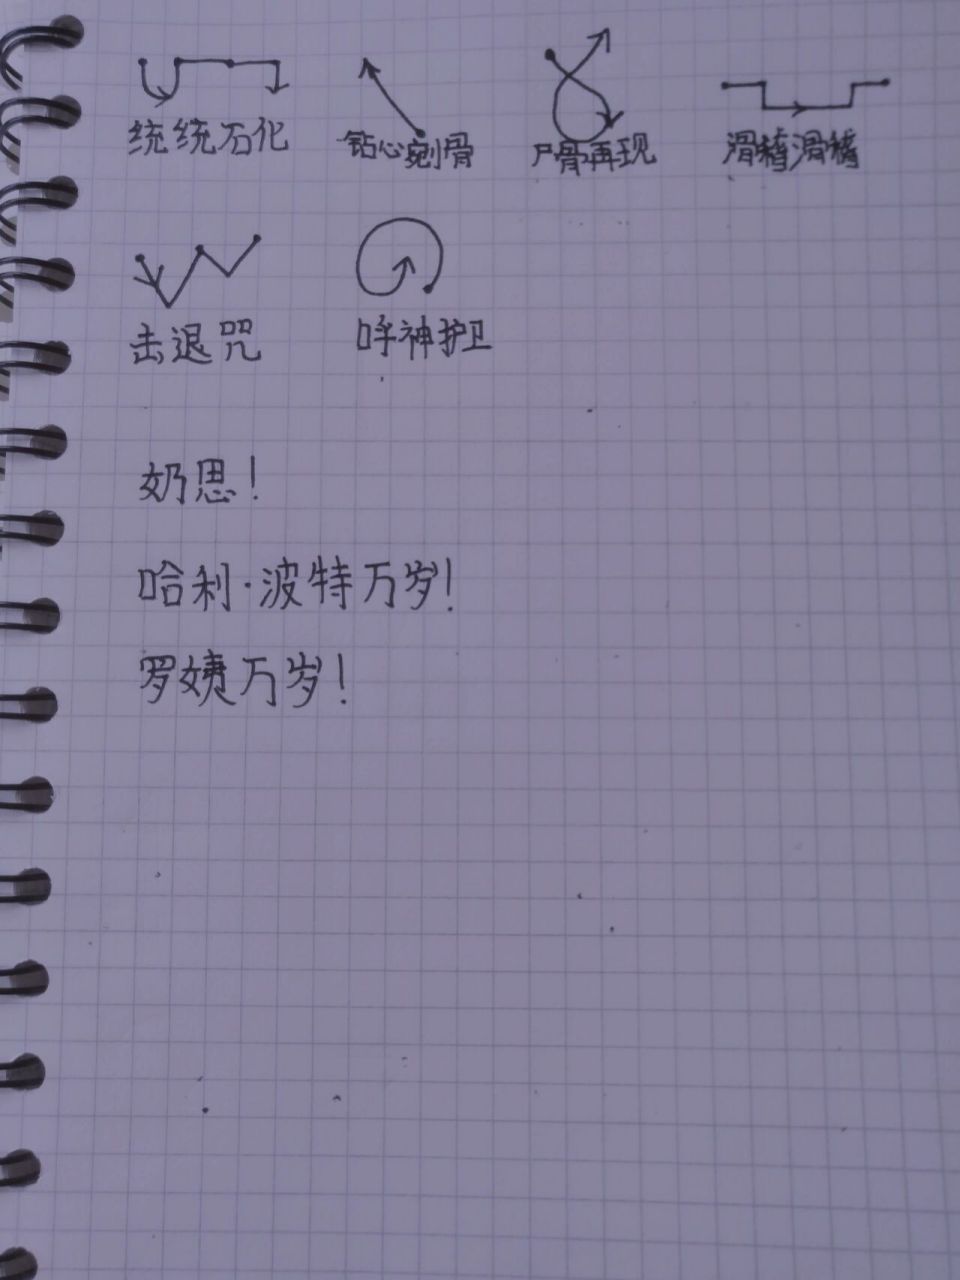 统统石化 钻心剜骨 尸骨再现 滑稽滑稽
击退咒 呼神护卫
奶思！
哈利·波特万岁！
罗姨万岁！